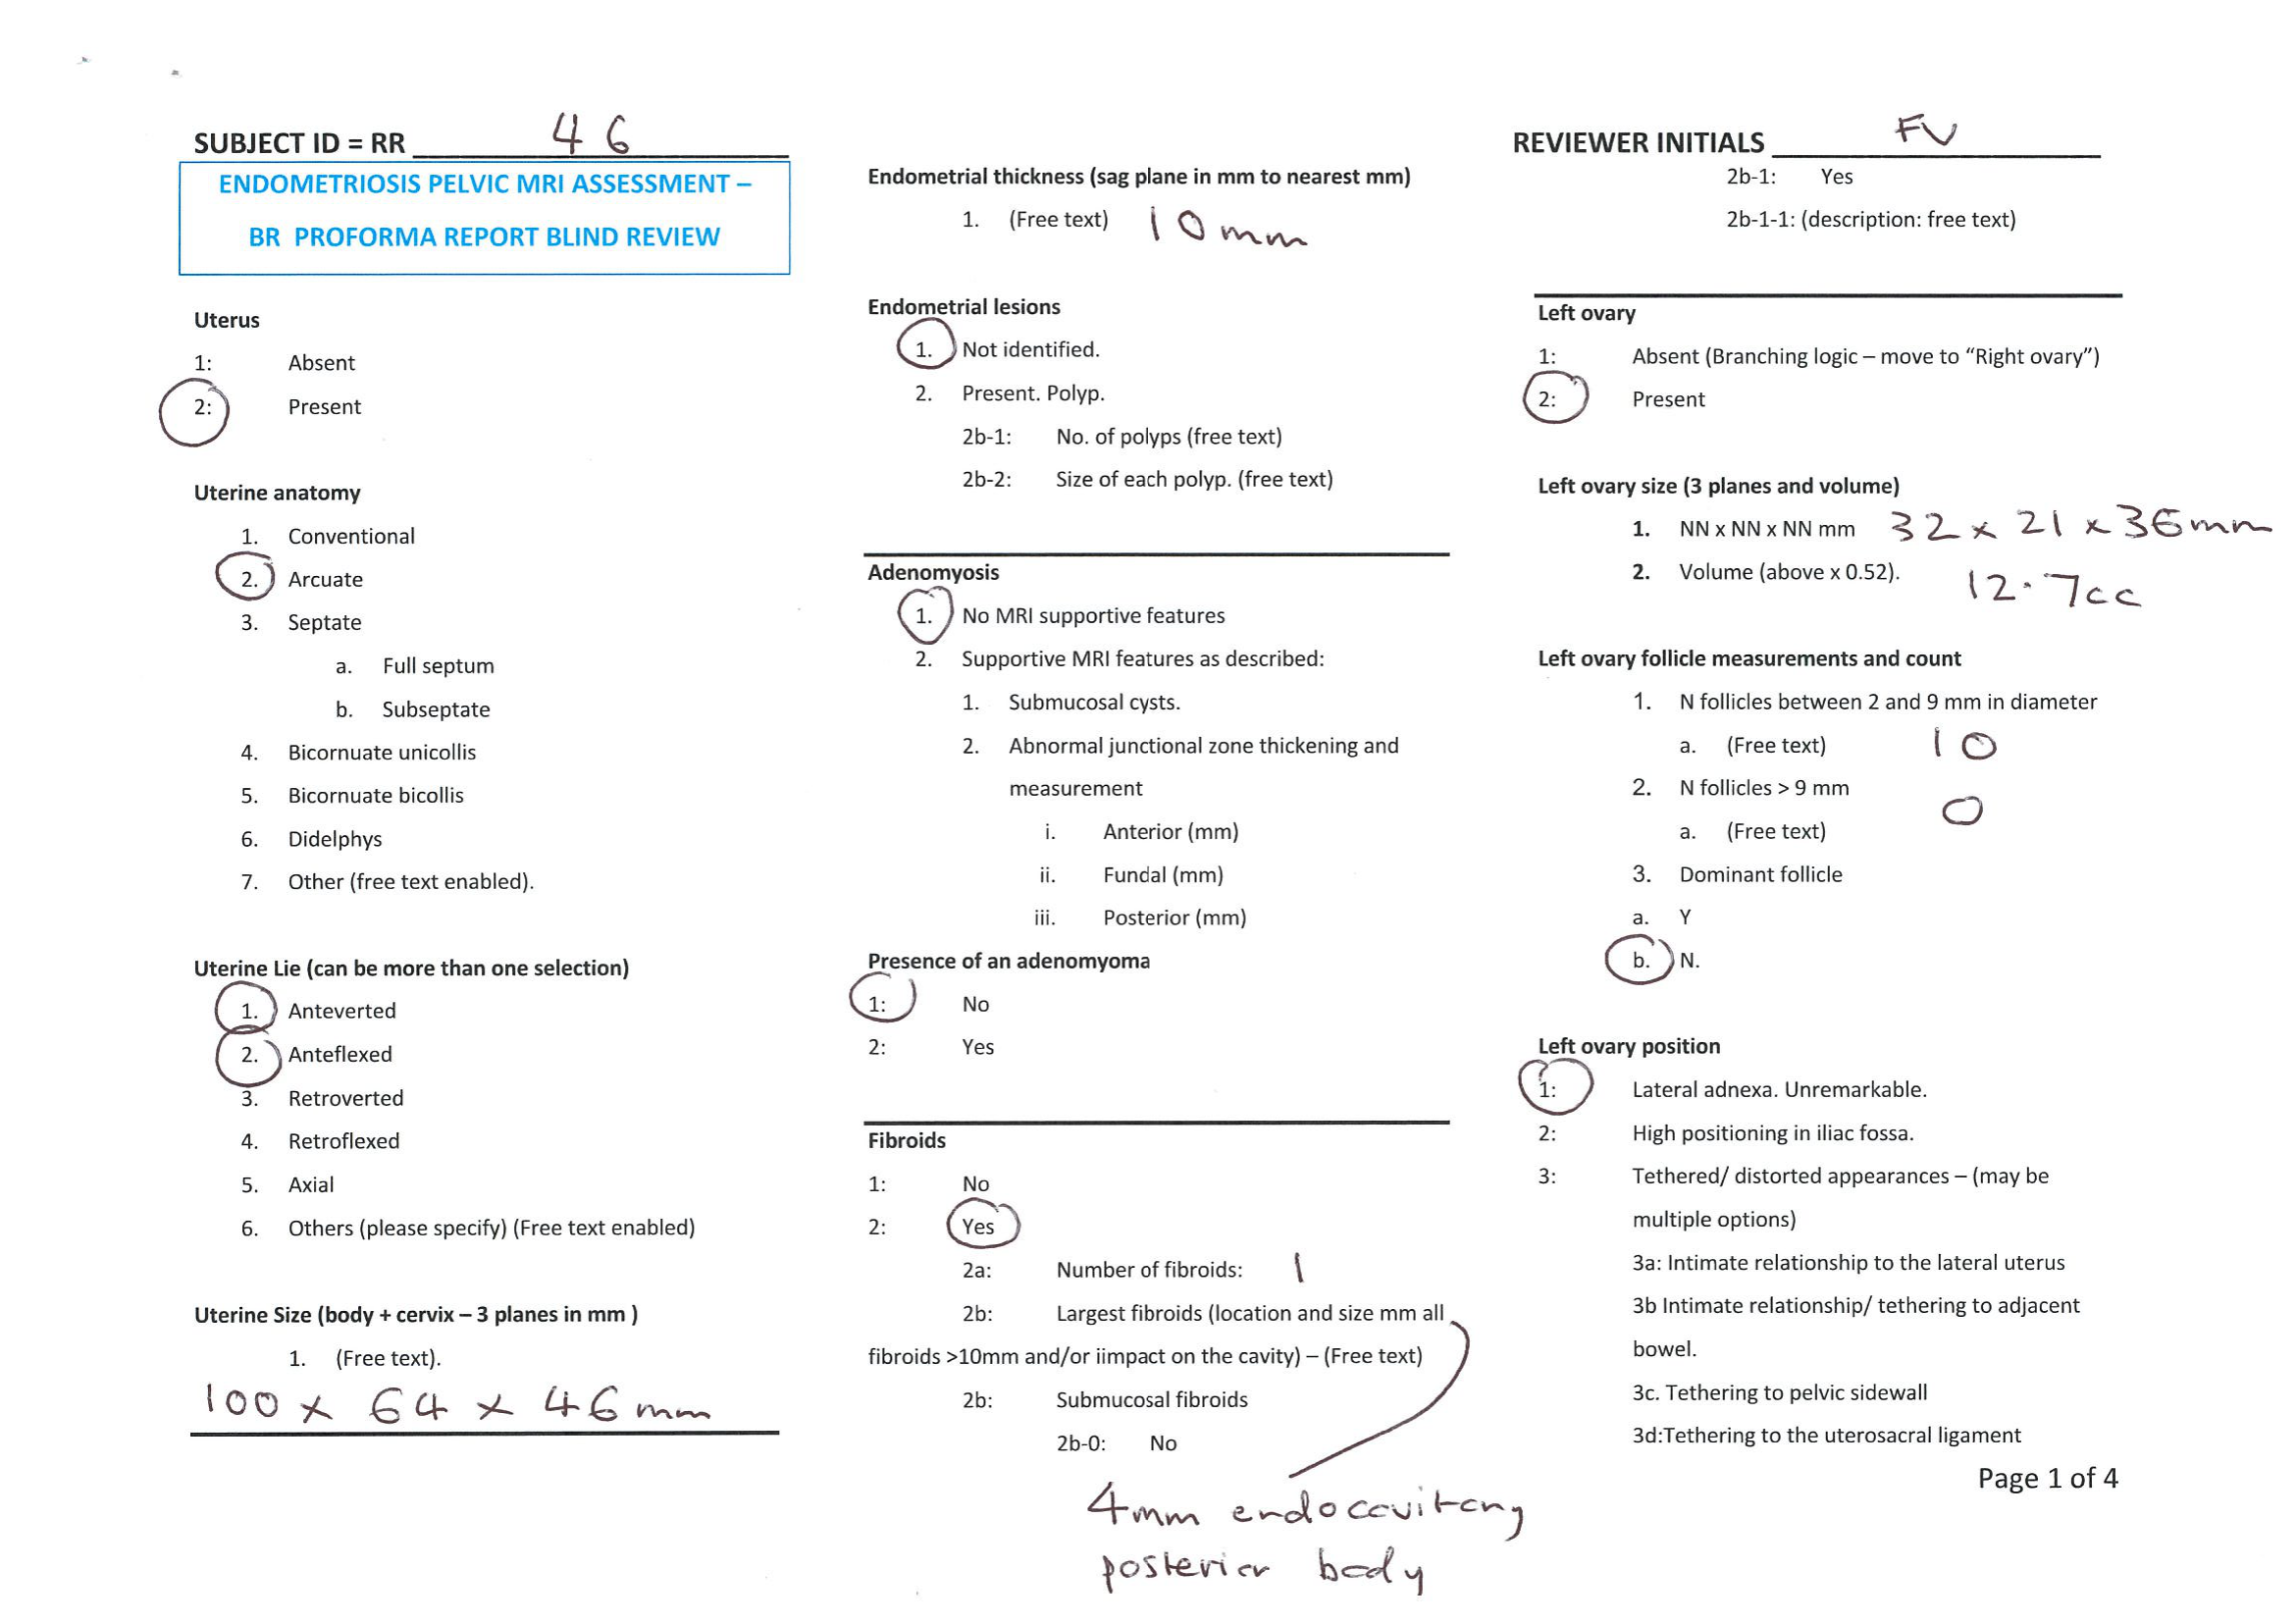 SUBJECT ID = RR 46
ENDOMETRIOSIS PELVIC MRI ASSESSMENT –
BR PROFORMA REPORT BLIND REVIEW
Uterus
1: Absent
2: Present
Uterine anatomy
1. Conventional
2. Arcuate
3. Septate
a. Full septum
b. Subseptate
4. Bicornuate unicollis
5. Bicornuate bicollis
6. Didelphys
7. Other (free text enabled).
Uterine Lie (can be more than one selection)
1. Anteverted
2. Anteflexed
3. Retroverted
4. Retroflexed
5. Axial
6. Others (please specify) (Free text enabled)
Uterine Size (body + cervix – 3 planes in mm )
1. (Free text).
100 x 64 x 46mm
Endometrial thickness (sag plane in mm to nearest mm)
1. (Free text) 10mm
Endometrial lesions
1. Not identified.
2. Present. Polyp.
2b-1: No. of polyps (free text)
2b-2: Size of each polyp. (free text)
Adenomyosis
1. No MRI supportive features
2. Supportive MRI features as described:
1. Submucosal cysts.
2. Abnormal junctional zone thickening and
measurement
i. Anterior (mm)
ii. Fundal (mm)
iii. Posterior (mm)
Presence of an adenomyoma
1: No
2: Yes
Fibroids
1: No
2: Yes
2a: Number of fibroids: 1
2b: Largest fibroids (location and size mm all
fibroids >10mm and/or iimpact on the cavity) – (Free text)
2b: Submucosal fibroids
2b-0: No
4mm endocavitary
posterior body
REVIEWER INITIALS FV
2b-1: Yes
2b-1-1: (description: free text)
Left ovary
1: Absent (Branching logic – move to “Right ovary”)
2: Present
Left ovary size (3 planes and volume)
1. NN x NN x NN mm 32 x 21 x 36mm
2. Volume (above x 0.52). 12.7cc
Left ovary follicle measurements and count
1. N follicles between 2 and 9 mm in diameter
a. (Free text) 10
2. N follicles > 9 mm
0
a. (Free text)
3. Dominant follicle
a. Y
b. N.
Left ovary position
1: Lateral adnexa. Unremarkable.
2: High positioning in iliac fossa.
3: Tethered/ distorted appearances – (may be
multiple options)
3a: Intimate relationship to the lateral uterus
3b Intimate relationship/ tethering to adjacent
bowel.
3c. Tethering to pelvic sidewall
3d:Tethering to the uterosacral ligament
Page 1 of 4